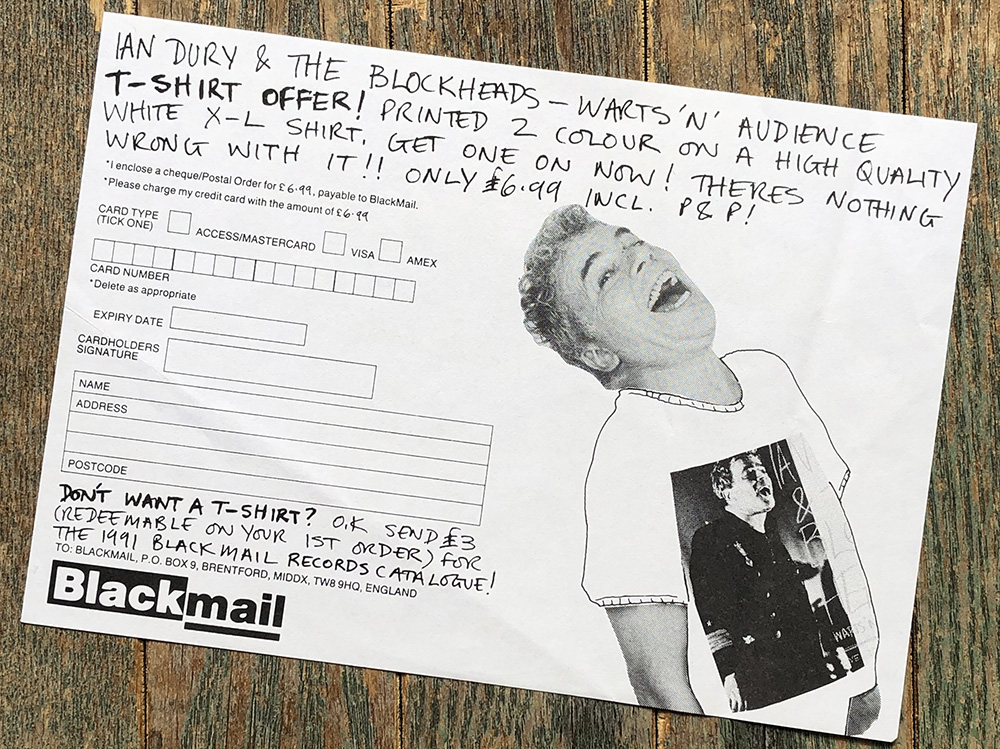 IAN DURY & THE BLOCKHEADS – WARTS 'N' AUDIENCE
T-SHIRT OFFER! PRINTED 2 COLOUR ON A HIGH QUALITY
WHITE X-L SHIRT, GET ONE ON NOW! THERES NOTHING
WRONG WITH IT!! ONLY £6.99 INCL. P&P!
*I enclose a cheque/Postal Order for £6.99, payable to BlackMail.
*Please charge my credit card with the amount of £6.99
CARD TYPE
(TICK ONE)
ACCESS/MASTERCARD
VISA
AMEX
CARD NUMBER
*Delete as appropriate
EXPIRY DATE
CARDHOLDERS
SIGNATURE
NAME
ADDRESS
POSTCODE
DON'T WANT A T-SHIRT? O.K SEND £3
(REDEEMABLE ON YOUR 1ST ORDER) FOR
THE 1991 BLACKMAIL RECORDS CATALOGUE!
TO: BLACKMAIL, P.O. BOX 9, BRENTFORD, MIDDX, TW8 9HQ, ENGLAND
Blackmail